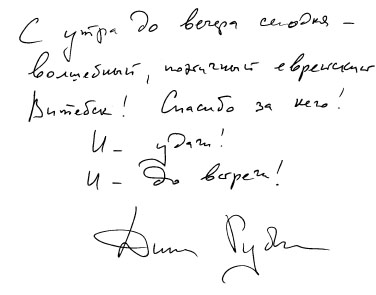 С утра до вечера сегодня –
волшебный, поэтичный еврейский
Витебск! Спасибо за него!
И – удачи!
И – до встречи!
Дина Рубин